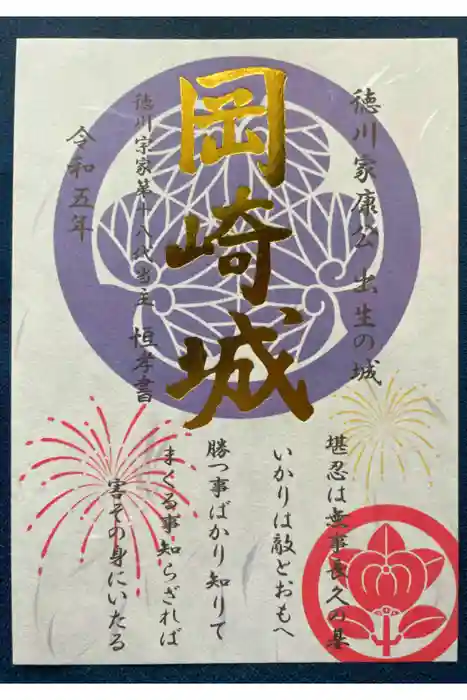 徳川家康公 出生の城
岡崎城
徳川宗家第十八代当主 恒孝書
令和五年
堪忍は無事長久の基
いかりは敵とおもへ
勝つ事ばかり知りて
まくる事知らざれば
害その身にいたる